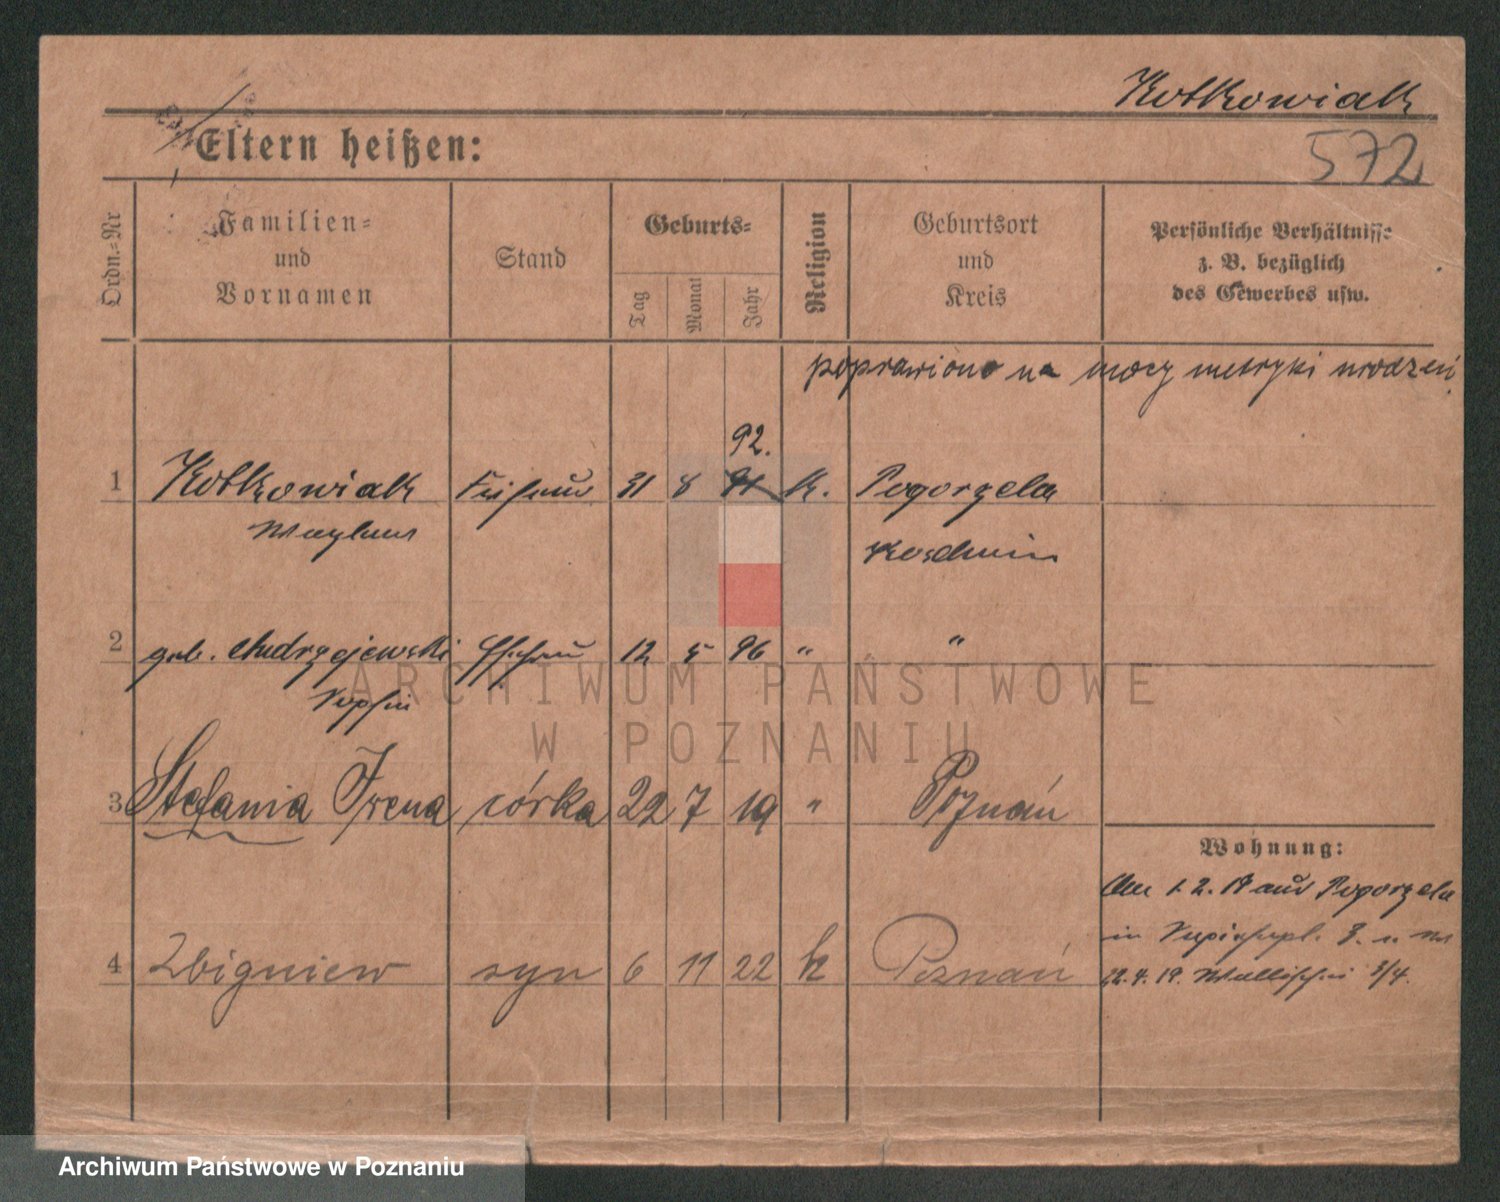 Kotkowiak
Eltern heißen:
572
Ordn.=Nr
Familien=
und
Vornamen
Stand
Geburts=
Tag
Monat
Jahr
Religion
Geburtsort
und
Kreis
Persönliche Verhältnisse
z. B. bezüglich
des Gewerbes usw.
poprawiono na mocy metryki urodzeń
92.
1 Kotkowiak 31 8 91 k. Pogorzela
Koschmin
2 geb. Andrzejewski 12 5 96 " "
Sophie
3 Stefania Irena córka 22 7 19 " Poznań
Wohnung:
Am 1.2.19 aus Pogorzela
in 8.
4 Zbigniew syn 6 11 22 k Poznań
22.4.19. Wallischei 3/4.
ARCHIWUM PAŃSTWOWE
W POZNANIU
Archiwum Państwowe w Poznaniu